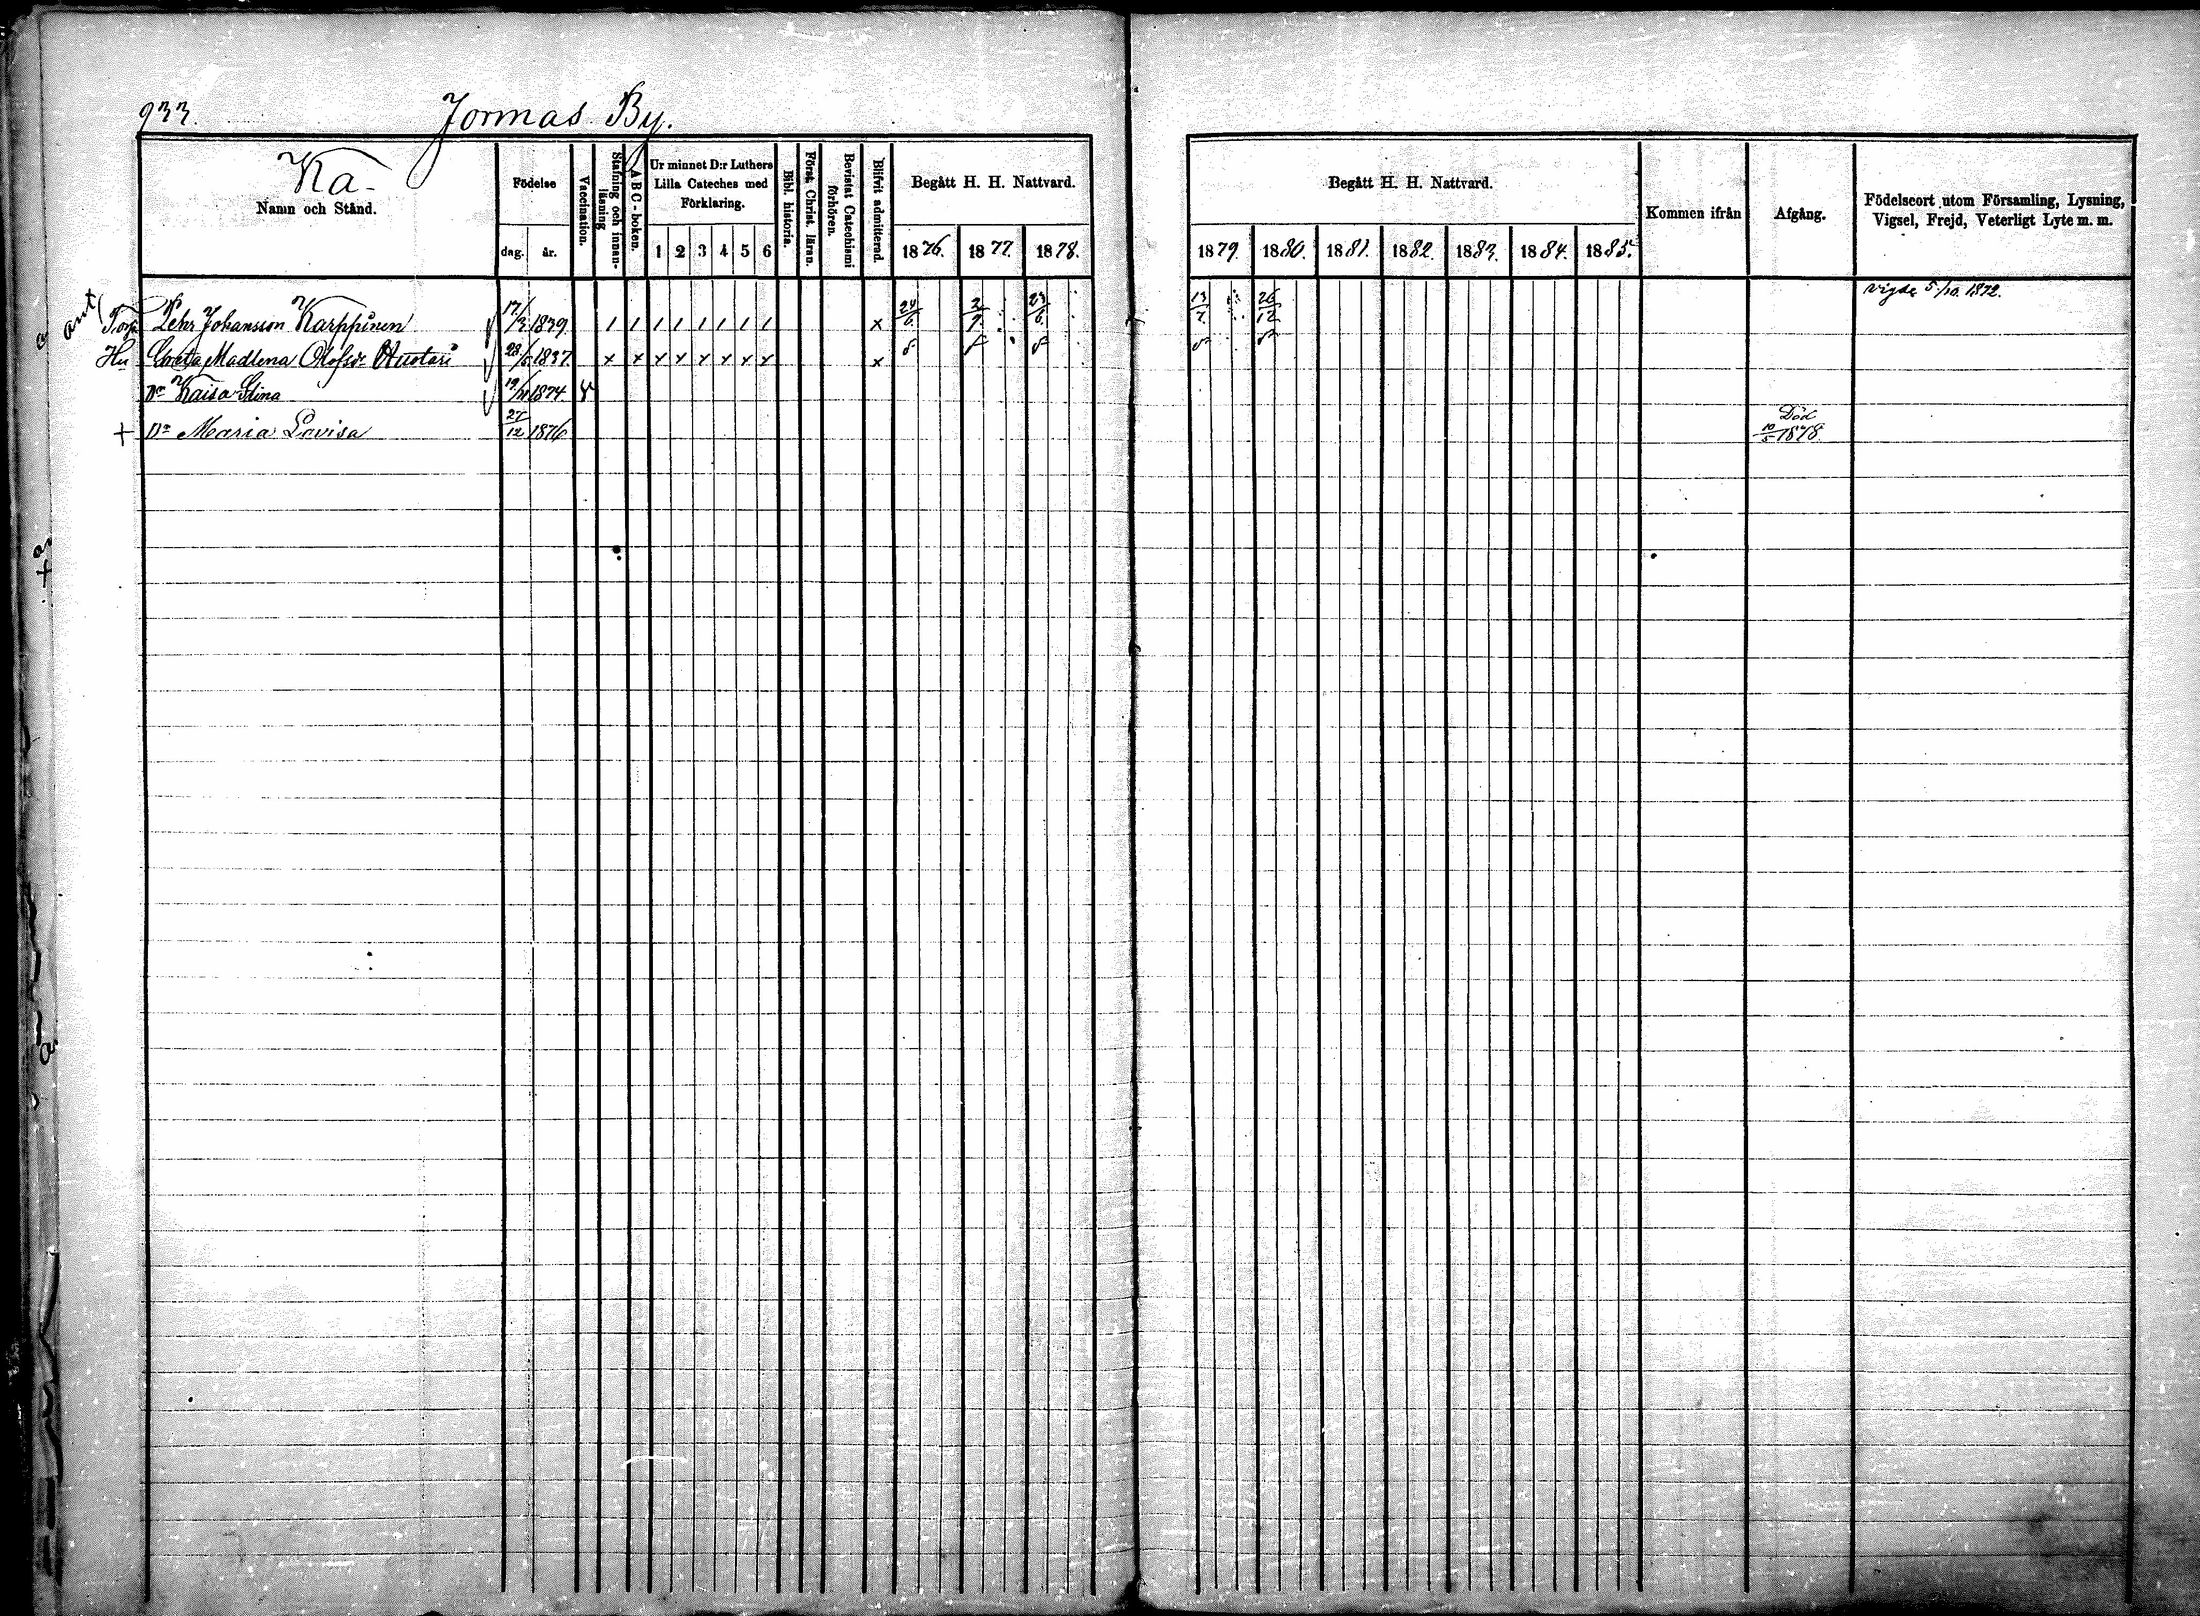 933. Jormas By.
Ka-
Namn och Stånd.
Födelse
dag. år.
Vaccination.
Stafning och innanläsning
ABC-boken.
Ur minnet D:r Luthers Lilla Cateches med Förklaring.
1 2 3 4 5 6
Bibl. historia.
Först. Christ. läran.
Bevistat Catechismi förhören.
Blifvit admitterad.
Begått H. H. Nattvard.
1876. 1877. 1878.
Begått H. H. Nattvard.
1879. 1880. 1881. 1882. 1883. 1884. 1885.
Kommen ifrån
Afgång.
Födelseort utom Församling, Lysning, Vigsel, Frejd, Veterligt Lyte m. m.
Vigde 5/10. 1872.
Torp. Pehr Johansson Karppinen 1839 / / / / / / / / x 24/6. 2/9. 23/6. 13/7. 26/12
Hu Greta Madlena Olofsdr 1837 x x x x x x x x x
Dr Kaisa Stina 1874
+ Dr Maria Lovisa 27/12 1876 Död 10/5 1878.